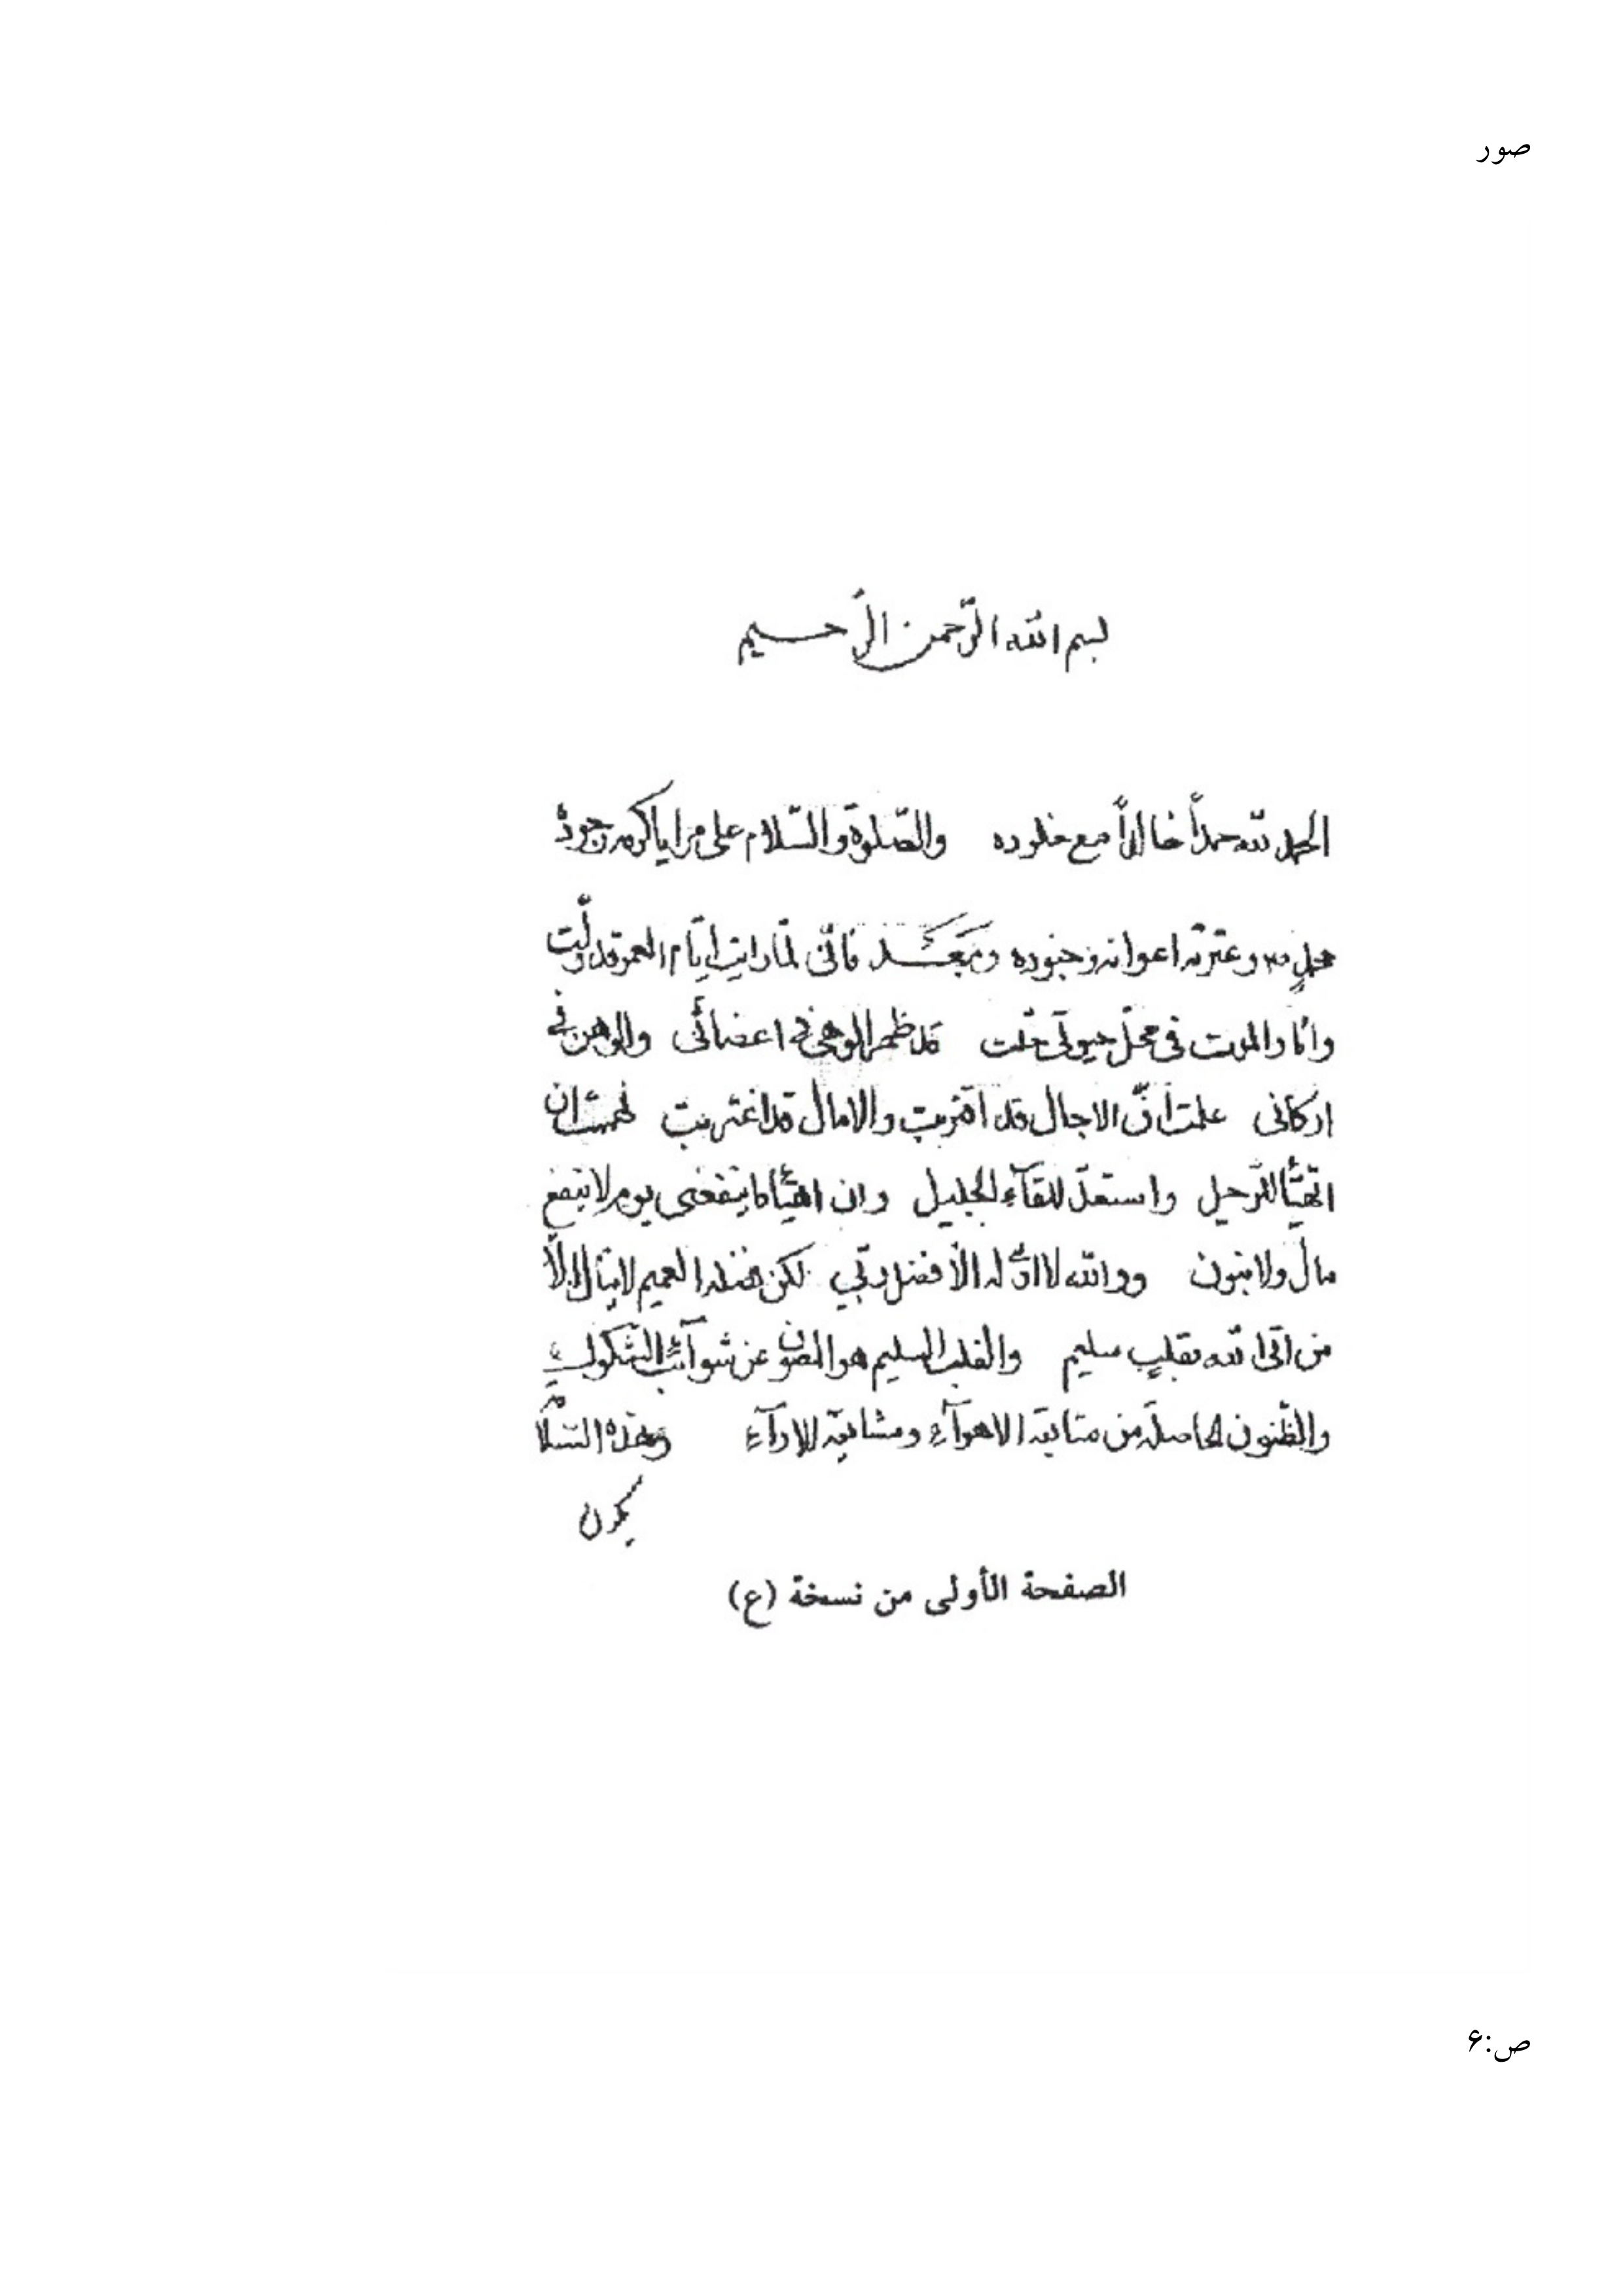 صور
بسم الله الرّحمن الرّحسيم
الحمد لله حمداً خالداً مع خلوده والصّلوة والسّلام على مرايا كرمه وجوده
وعترته اعوانه وجنوده وبَعَـد فانّی لمّا رايت ايّام العمر قد ولّت
واثار الموت فی محلّ حيوتی حلّت قد ظهر الوهی فی اعضائی والوهن فی
اركانی علمت انّ الاجال قد اقتربت والامال قد اغتربت فهممت ان
اتهيّأ للرّحيل واستعدّ للقآء الجليل وان اهيّأ ما ينفعنی يوم لا ينفع
مال ولا بنون ووالله لا اراه الّا فضل ربّی لكن فضله العميم لا ينال الّا
من اتی الله بقلبٍ سليم والقلب السليم هو المصون عن شوآئب الشكوك
والظّنون الحاصلة من متابعة الاهوآء ومشايعة الارآء وهذه السّلا
يكون
الصفحة الأولى من نسخة (ع)
ص:۶